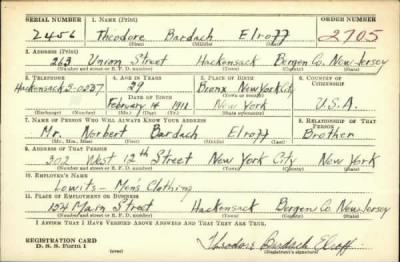 SERIAL NUMBER 1. NAME (Print) ORDER NUMBER
2456 Theodore Bardach Elroff 2705
(First) (Middle) (Last)
2. ADDRESS (Print)
263 Union Street Hackensack Bergen Co. New Jersey
(Number and street or R. F. D. number) (Town) (County) (State)
3. TELEPHONE 4. AGE IN YEARS 5. PLACE OF BIRTH 6. COUNTRY OF CITIZENSHIP
Hackensack 2-0237 29 Bronx New York City
DATE OF BIRTH (Town or county)
February 14 1912 New York U.S.A.
(Mo.) (Day) (Yr.) (State or country)
7. NAME OF PERSON WHO WILL ALWAYS KNOW YOUR ADDRESS 8. RELATIONSHIP OF THAT PERSON
Mr. Norbert Bardach Elroff Brother
(Mr., Mrs., Miss) (First) (Middle) (Last)
9. ADDRESS OF THAT PERSON
302 West 12th Street New York City New York
(Number and street or R. F. D. number) (Town) (County) (State)
10. EMPLOYER'S NAME
Lowits- Men's Clothing
11. PLACE OF EMPLOYMENT OR BUSINESS
154 Main Street Hackensack Bergen Co. New Jersey
(Number and street or R. F. D. number) (Town) (County) (State)
I AFFIRM THAT I HAVE VERIFIED ABOVE ANSWERS AND THAT THEY ARE TRUE.
REGISTRATION CARD
D. S. S. Form 1 (over) Theodore Bardach Elroff